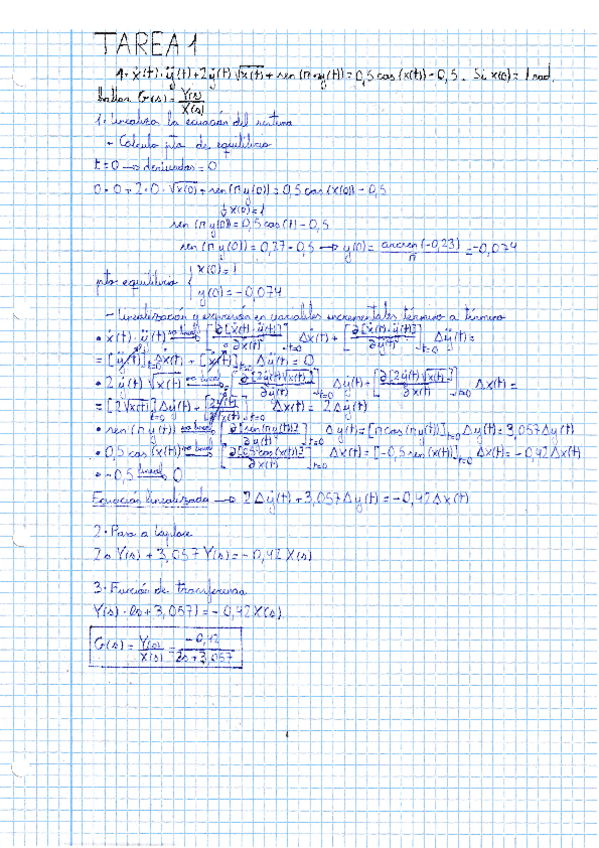 TAREA 1
1. ẋ(t)·ÿ(t)+2ẏ(t)√x(t)+sen(π·y(t))=0,5cos(x(t))-0,5. Si x(0)=1rad.
Hallar G(s)=Y(s)/X(s)
1. Linealizo la ecuación del sistema
- Calculo pto de equilibrio
t=0 → derivadas=0
0·0+2·0·√x(0)+sen(πy(0))=0,5cos(x(0))-0,5
x(0)=1
sen(πy(0))=0,5cos(1)-0,5
sen(πy(0))=0,27-0,5 → y(0)=arcsen(-0,23)/π=-0,074
pto equilibrio { x(0)=1
y(0)=-0,074
- Linealización y expresión en variables incrementales término a término
• ẋ(t)·ÿ(t) no lineal [∂[ẋ(t)·ÿ(t)]/∂ẋ(t)]t=0 Δẋ(t)+[∂[ẋ(t)·ÿ(t)]/∂ÿ(t)]t=0 Δÿ(t)=
=[ÿ(t)]t=0 Δẋ(t)+[ẋ(t)]t=0 Δÿ(t)=0
• 2ẏ(t)√x(t) no lineal [∂[2ẏ(t)√x(t)]/∂ẏ(t)]t=0 Δẏ(t)+[∂[2ẏ(t)√x(t)]/∂x(t)]t=0 Δx(t)=
=[2√x(t)]t=0 Δẏ(t)+[2ẏ(t)/2√x(t)]t=0 Δx(t)=2Δẏ(t)
• sen(πy(t)) no lineal [∂[sen(πy(t))]/∂y(t)]t=0 Δy(t)=[πcos(πy(t))]t=0 Δy(t)=3,057Δy(t)
• 0,5cos(x(t)) no lineal [∂[0,5cos(x(t))]/∂x(t)]t=0 Δx(t)=[-0,5sen(x(t))]t=0 Δx(t)=-0,42Δx(t)
• -0,5 lineal 0
Ecuación linealizada → 2Δẏ(t)+3,057Δy(t)=-0,42Δx(t)
2. Paso a Laplace
2sY(s)+3,057Y(s)=-0,42X(s)
3. Función de transferencia
Y(s)·(2s+3,057)=-0,42X(s)
G(s)=Y(s)/X(s)=-0,42/2s+3,057